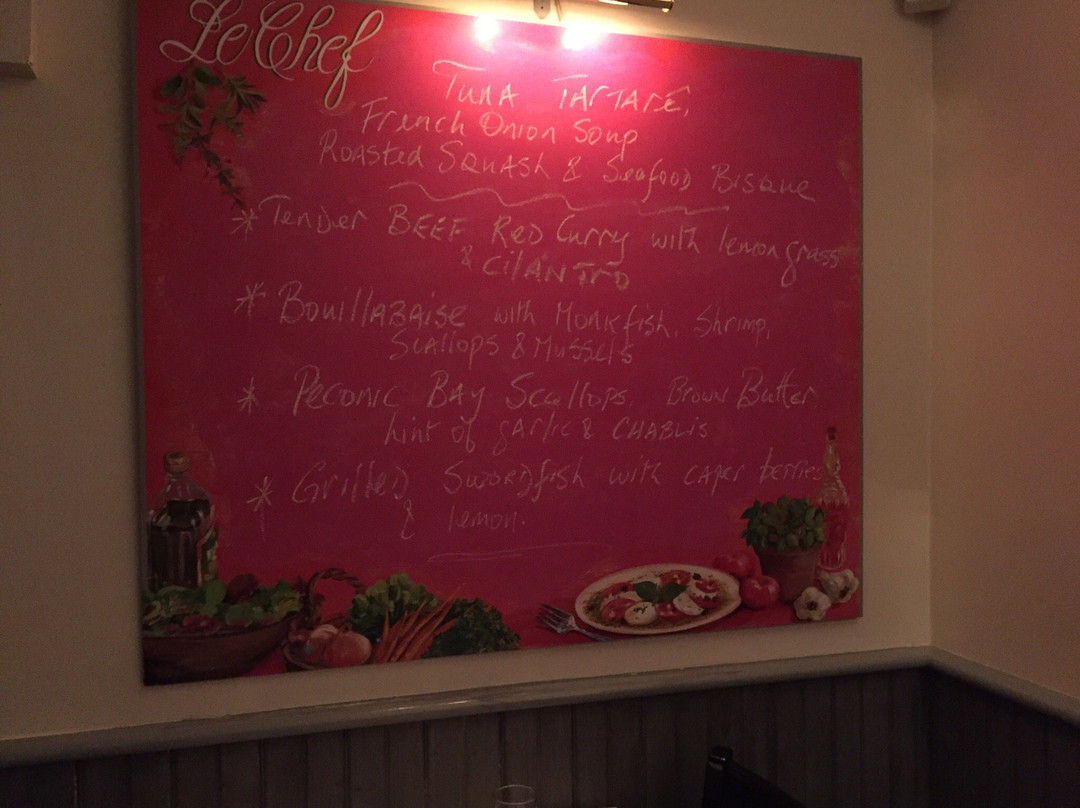 Le Chef
Tuna Tartare,
French Onion Soup
Roasted Squash & Seafood Bisque
* Tender Beef Red Curry with lemon grass
& cilantro
* Bouillabaise with Monkfish, Shrimp,
Scallops & Mussels
* Peconic Bay Scallops. Brown Butter
hint of garlic & Chablis
* Grilled Swordfish with caper berries
& lemon.